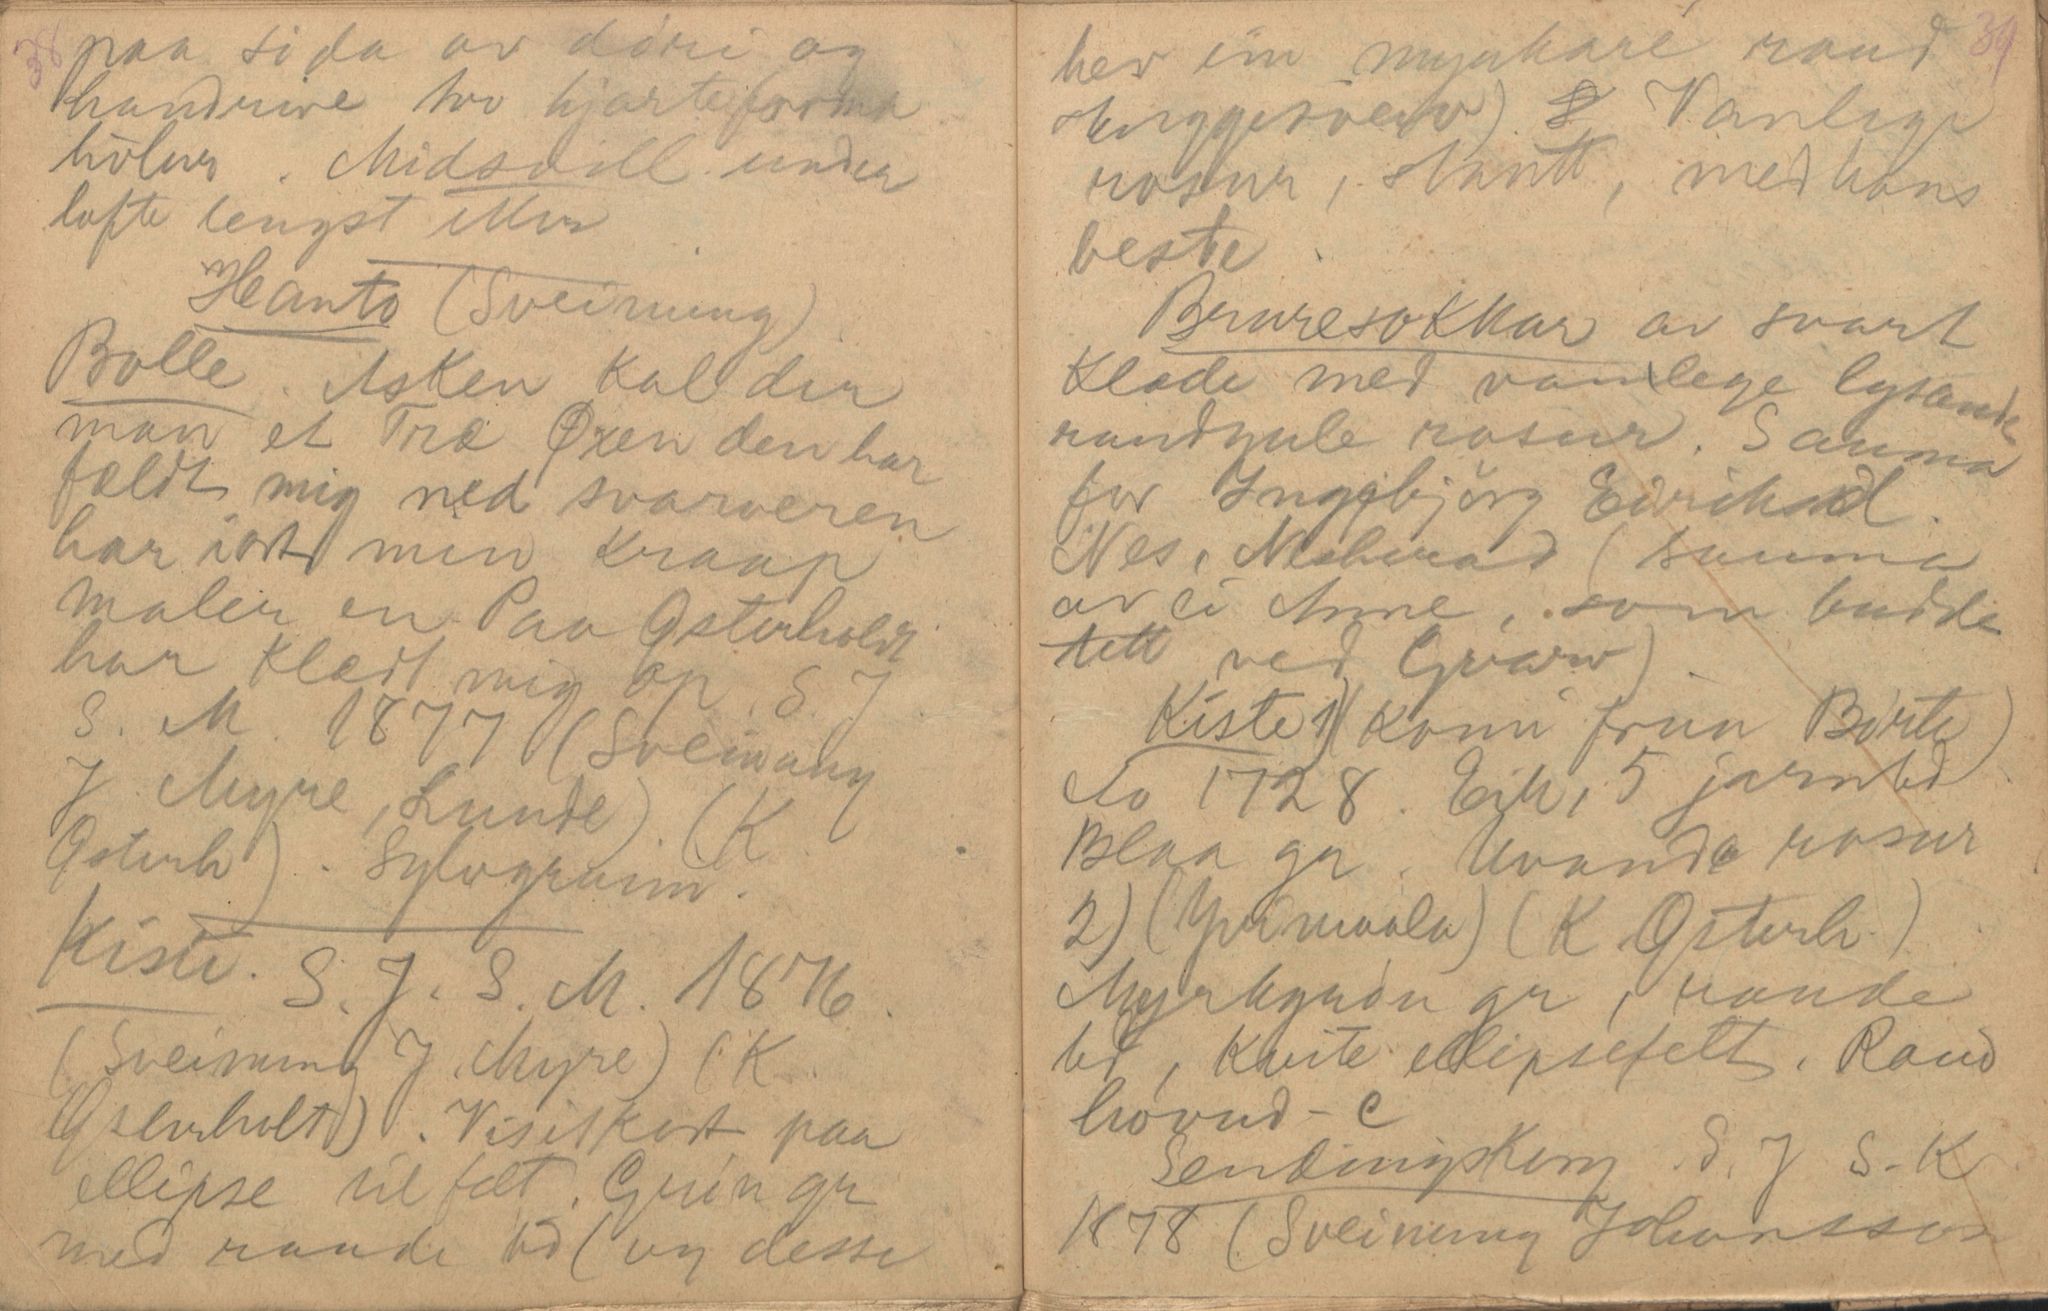 38
paa sida av döri og
handrive tvo hjarteforma
hòlur. Midsvill under
lofte lengst
Heanto (Sveinung)
Bolle. Asken kalder
man et Træ Øxen den har
fældt mig ned svarveren
har iört min Kraap
maler en Paa Østerholdt
har Klædt mig op. S J
S. M. 1877 (Sveinung
J Myre, Lunde) (K
Østerh). Sylvgraim.
Kiste. S. J. S. M. 1876.
(Sveinung J. Myre) (K.
Østerholt). Visitkort paa
ellipse felt. Grön gr
med raude bd (og desse
39
hev ein myukare raud
skuggesveiv) Vanlege
rosur, skantt, med hans
beste.
Bruresokkar av svart
Klæde med vanlege lysande
raudgule rosur. Sauma
for Ingebjörg Eiriksd.
Nes, Nesherad (sauma
av ei Anne, som budde
tett ved Gvarv)
Kiste 1) (Komi fraa Börte)
No 1728. Eik, 5 jarnbd
Blaa gr. Uvande rosur
2) (Yvimaala) (K Østerh.)
Myrkgrön gr, raude
bd, kvite ellipsefelt. Raud
hovud-C
Sendingskorg S. J S. K
1878 (Sveinung Johansson